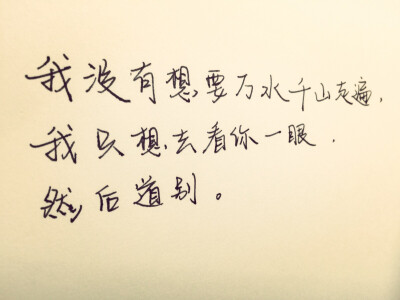 我没有想要万水千山走遍,
我只想去看你一眼.
然后道别。